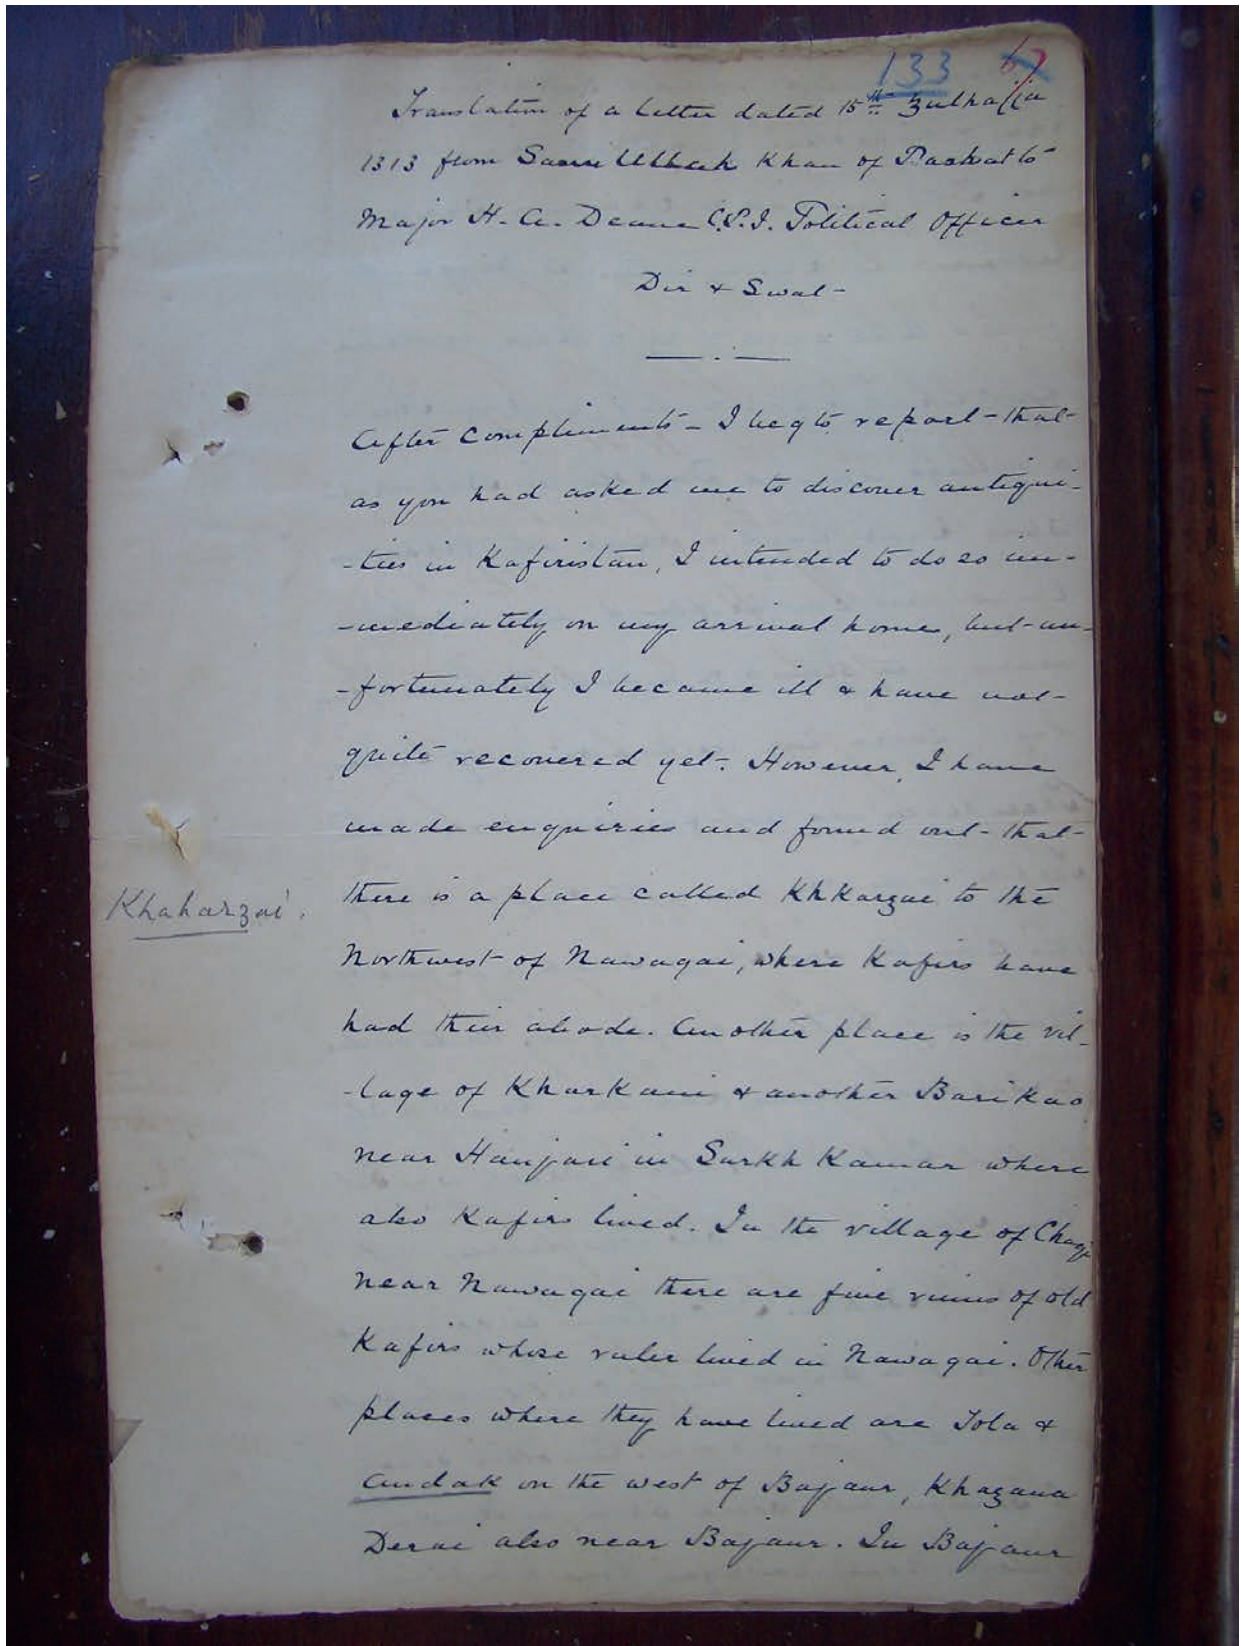 133 67
Translation of a letter dated 15th Zulhajja
1313 from Sami Ullah Khan of Pashat to
Major H. A. Deane C.S.I. Political Officer
Dir & Swat -
After compliments - I beg to report - that -
as you had asked me to discover antiqui-
-ties in Kafiristan, I intended to do so im-
-mediately on my arrival home, but - un-
-fortunately I became ill & have not -
quite recovered yet -. However, I have
made enquiries and found out - that -
Khaharzai.
there is a place called KhKarzai to the
Northwest of Nawagai, where Kafirs have
had their abode. Another place is the vil-
-lage of Kharkani & another Barikao
near in Surkh Kamar where
also Kafirs lived. In the village of
near Nawagai there are five ruins of old
Kafirs whose ruler lived in Nawagai. Other
places where they have lived are &
Andak on the west of Bajaur, Khazana
Derai also near Bajaur. In Bajaur